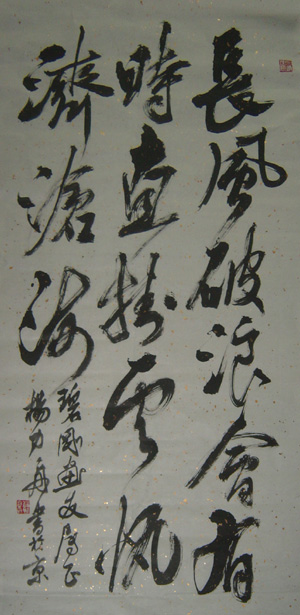 長風破浪會有
時直掛云帆
濟滄海
碧正
楊力舟書於京